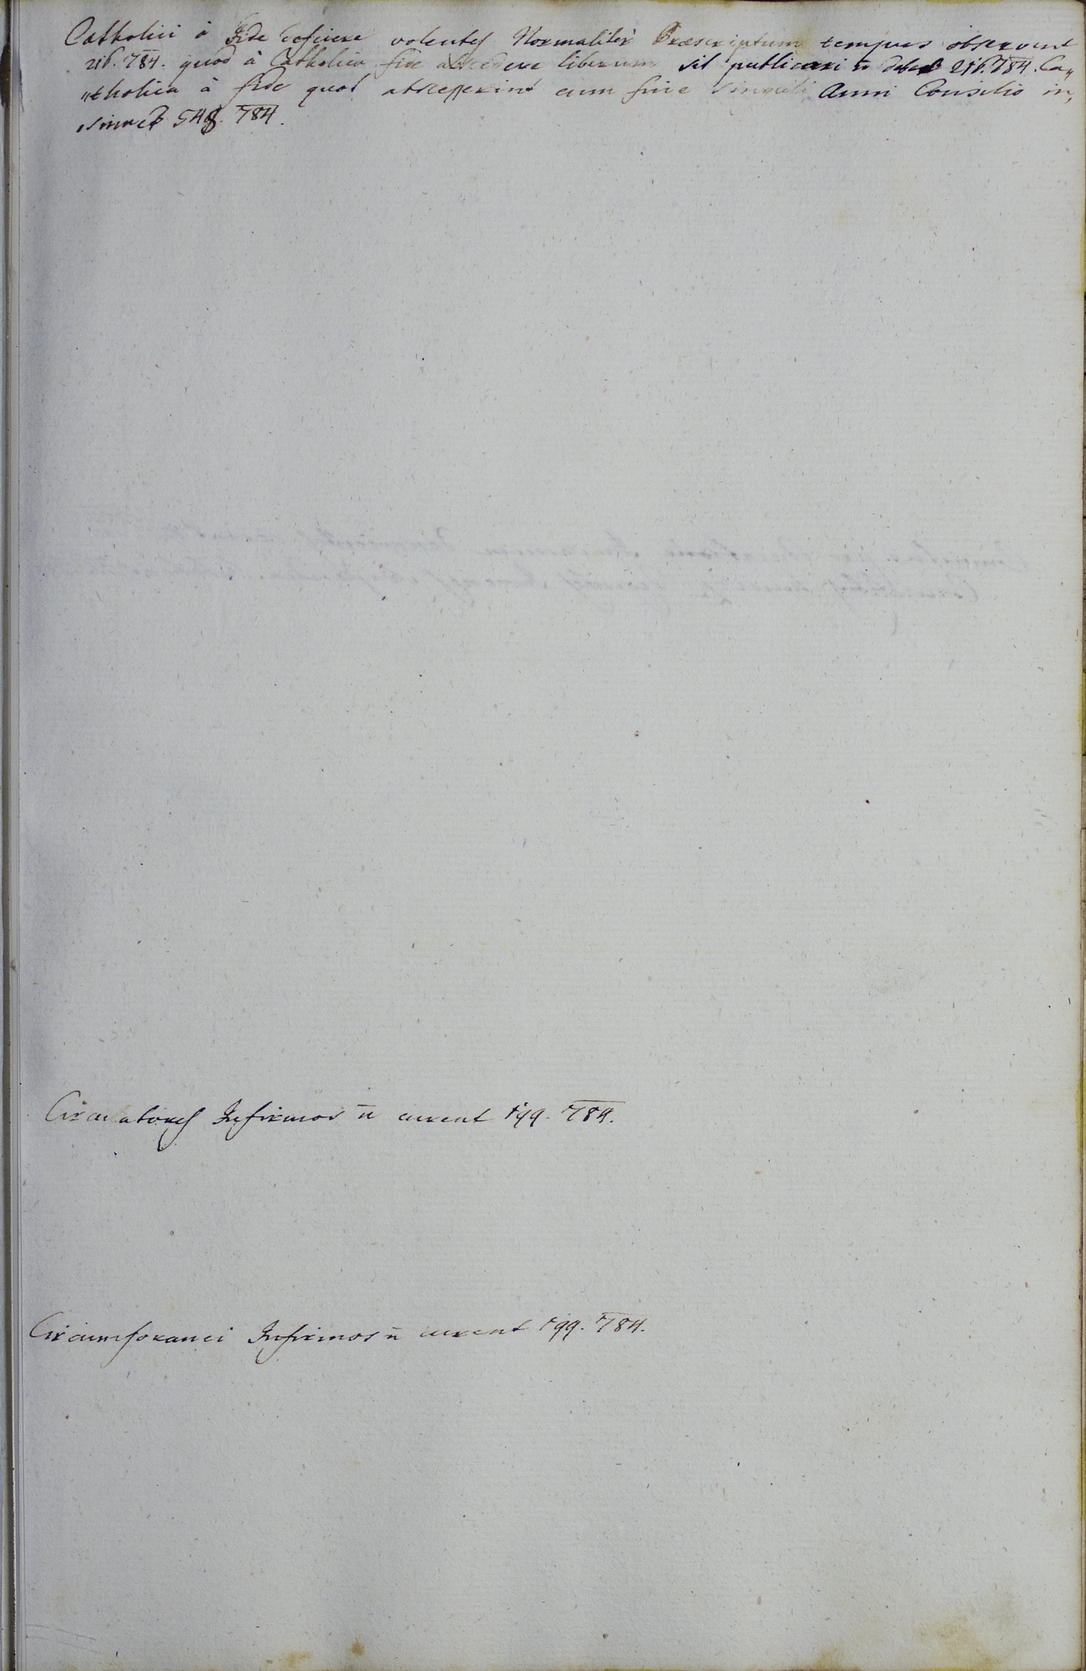 Catholici à Fide deficere volentes Normaliter Præscriptum tempus observent
216. 784. quod à Catholica fide abscedere liberum sit publicari debet 216. 784. Ca„
„tholica à fide quot abscesserint cum fine singuli Anni Consilio in„
„sinuet 548. 784.
Circulatores Infirmos n̄ curent 199. 784.
Circumforanei Infirmos n̄ curent 199. 784.